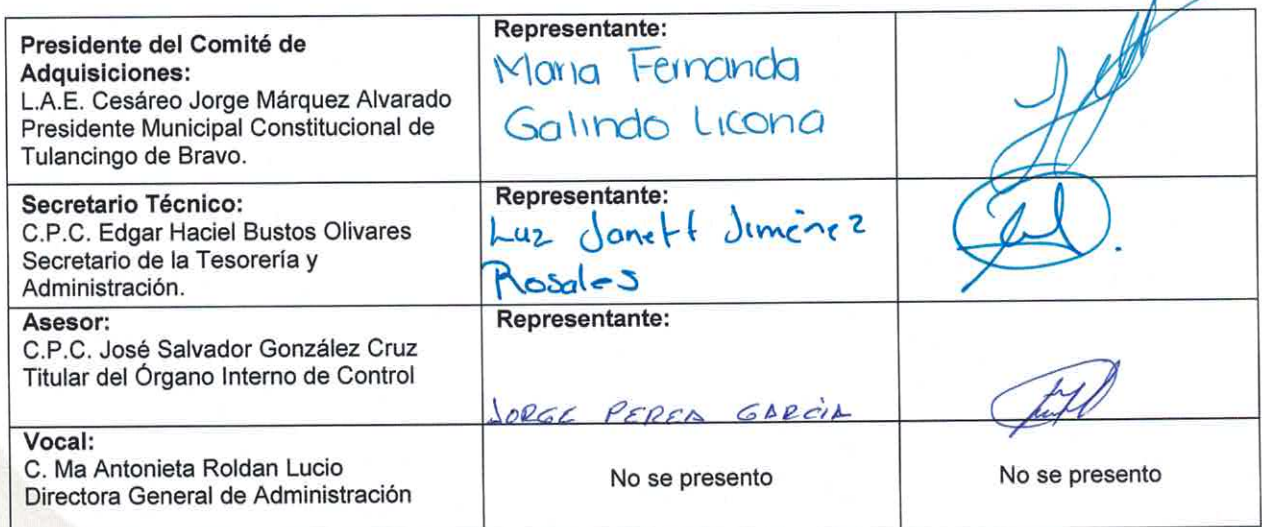 Presidente del Comité de
Adquisiciones:
L.A.E. Cesáreo Jorge Márquez Alvarado
Presidente Municipal Constitucional de
Tulancingo de Bravo.
Representante:
Maria Fernanda
Galindo Licona
Secretario Técnico:
C.P.C. Edgar Haciel Bustos Olivares
Secretario de la Tesorería y
Administración.
Representante:
Luz Janett Jiménez
Rosales
Asesor:
C.P.C. José Salvador González Cruz
Titular del Órgano Interno de Control
Representante:
JORGE PEREA GARCÍA
Vocal:
C. Ma Antonieta Roldan Lucio
Directora General de Administración
No se presento
No se presento